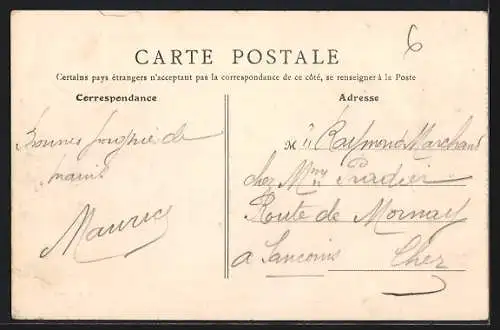 6
CARTE POSTALE
Certains pays étrangers n'acceptant pas la correspondance de ce côté, se renseigner à la Poste
Correspondance
Bonnes poignée de
mains
Maurice
Adresse
M Raymond Marchand
chez Mme Pradier
Route de Mornay
a Sancoins Cher